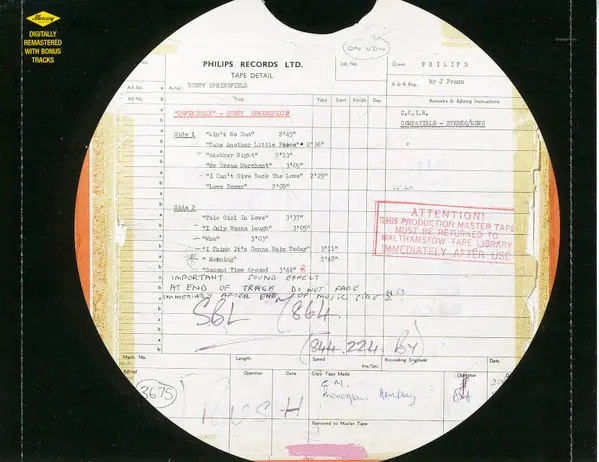 Mercury
DIGITALLY
REMASTERED
WITH BONUS
TRACKS
ON VDU
PHILIPS RECORDS LTD.
TAPE DETAIL
Job No.
Client PHILIPS
A/A No. Artist: DUSTY SPRINGFIELD
A & R Rep. Mr J Franz
Alt No. Title Take Start Finish Dur. Remarks & Editing Instructions
"DEFINITELY" - DUSTY SPRINGFIELD
C.C.I.R.
COMPATIBLE - STEREO/MONO
Side 1 "Ain't No Sun" 2'45"
"Take Another Little Piece" 2'36"
"Another Night" 2'13"
"Mr Dream Merchant" 3'05"
"I Can't Give Back The Love" 2'29"
"Love Power" 2'09"
Side 2
"This Girl In Love" 3'37"
"I Only Wanna Laugh" 3'05"
"Who" 3'03"
"I Think It's Gonna Rain Today" 3'11"
"Morning" 2'48"
"Second Time Around" 3'44"
ATTENTION!
THIS PRODUCTION MASTER TAPE
MUST BE RETURNED TO
WALTHAMSTOW TAPE LIBRARY
IMMEDIATELY AFTER USE
IMPORTANT. SOUND EFFECT
AT END OF TRACK DO NOT FADE
IMMEDIATELY AFTER END OF MUSIC SIDE 2
SBL 7864
(844.224 BY)
Mach. No. Length Speed Ins/Sec. Recording Engineer Date
Edited Operator Date Copy Tape Made Operator
3675
C.M.
Removed to Master Tape